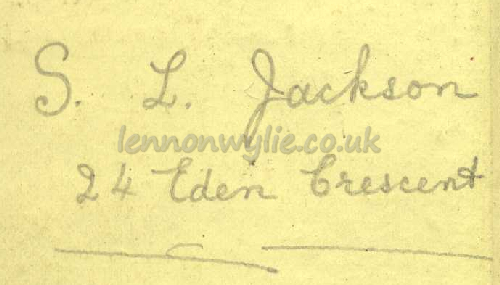 S. L. Jackson
lennonwylie.co.uk
24 Eden Crescent